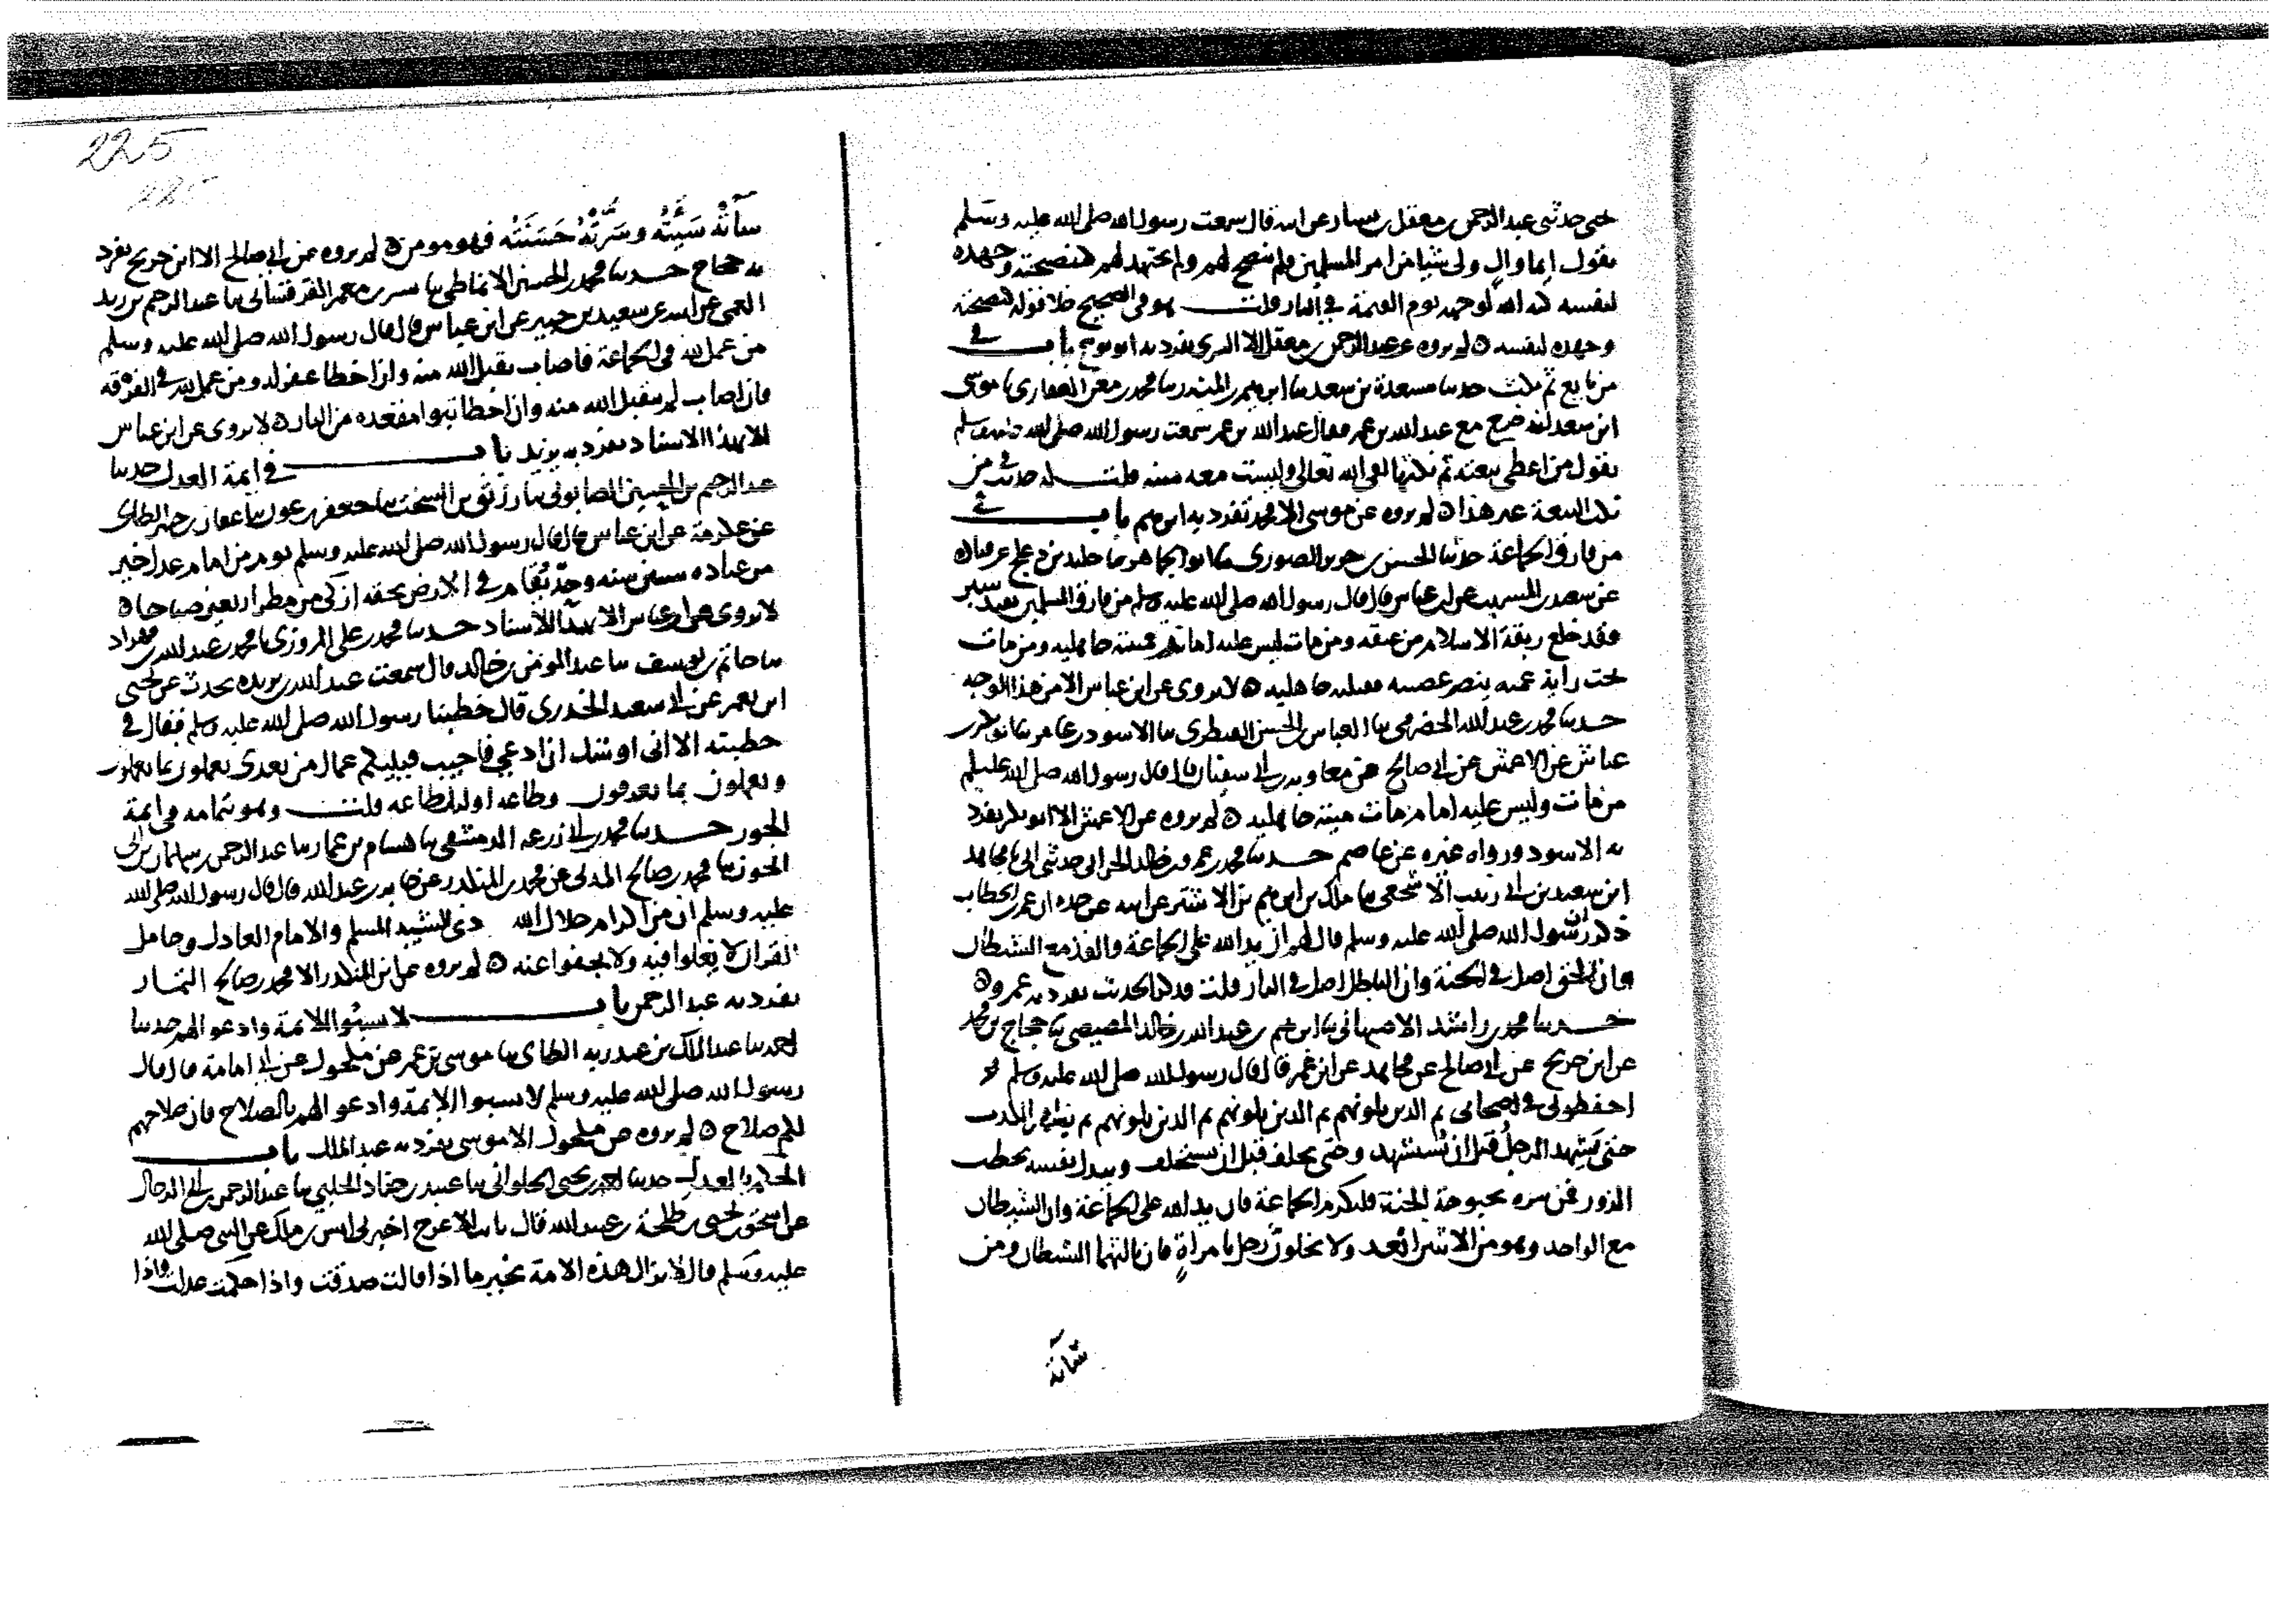 حدثني عبد الرحمن بن معقل بن يسار عن ابيه قال سمعت رسول الله صلى الله عليه وسلم
يقول ايما وال ولى شيا من امر المسلمين فلم ينصح لهم ولم يجتهد لهم كنصيحته وجهده
لنفسه كبه الله لوجهه يوم القيمة في النار قلت هو في الصحيح خلا قوله كنصيحته
وجهده لنفسه ه لم يروه عن عبد الرحمن بن معقل الا السري تفرد به ابو باب في
من بايع ثم نكث حدثنا مسعدة بن سعد ثنا ابرهيم بن المنذر ثنا محمد بن معن الغفاري ثنا موسى
ابن سعد انه خرج مع عبد الله بن عمر فقال عبد الله بن عمر سمعت رسول الله صلى الله عليه وسلم
يقول من اعطى بيعته ثم نكثها لقي الله تعالى وليست معه يمينه قلت له حديث في من
نكث البيعة غير هذا ه لم يروه عن موسى الا محمد تفرد به ابرهيم باب في
من فارق الجماعة حدثنا الحسن بن جرير الصوري ثنا ابو الجماهر ثنا خليد بن دعلج عن قتاده
عن سعيد بن المسيب عن ابن عباس قال قال رسول الله صلى الله عليه وسلم من فارق المسلمين قيد شبر
فقد خلع ربقة الاسلام من عنقه ومن مات ليس عليه امام فميتته جاهليه ومن مات
تحت راية عميه ينصر عصبيه فقتلته جاهليه ه لا يروى عن ابن عباس الا من هذا الوجه
حدثنا محمد بن عبد الله الحضرمي ثنا العباس بن الحسن القنطري ثنا الاسود بن عامر ثنا ابو بكر بن
عياش عن الاعمش عن ابي صالح عن معاوية بن ابي سفيان قال قال رسول الله صلى الله عليه وسلم
من مات وليس عليه امام مات ميتة جاهليه ه لم يروه عن الاعمش الا ابو بكر تفرد
به الاسود ورواه غيره عن عاصم حدثنا محمد بن عمرو بن خالد الحراني حدثني ابي ثنا مجاهد
ابن سعيد بن ابي زينب الاشجعي ثنا مالك بن ابرهيم بن الاشتر عن ابيه عن جده ان عمر بن الخطاب
ذكر ان رسول الله صلى الله عليه وسلم قال لهم ان يد الله على الجماعة والفذ مع الشيطان
وان الحق اصل في الجنة وان الباطل اصل في النار قلت فذكر الحديث تفرد به عمرو ه
حدثنا محمد بن راشد الاصبهاني ثنا ابرهيم بن عبد الله بن خالد المصيصي ثنا حجاج بن محمد
عن ابن جريج عن ابي صالح عن مجاهد عن ابن عمر قال قال رسول الله صلى الله عليه وسلم
احفظوني في اصحابي ثم الذين يلونهم ثم الذين يلونهم ثم الذين يلونهم ثم يفشو الكذب
حتى يشهد الرجل قبل ان يستشهد وحتى يحلف قبل ان يستحلف ويبذل نفسه بخطب
الزور فمن سره بحبوحة الجنة فليلزم الجماعة فان يد الله على الجماعة وان الشيطان
مع الواحد وهو من الاثنين ابعد ولا يخلون رجل بامراة فان ثالثهما الشيطان ومن
ساته
225
ساته سيئته وسرته حسنته فهو مومن ه لم يروه عن ابي صالح الا ابن جريج تفرد
به حجاج حدثنا محمد بن الحسين الانماطي ثنا بن معمر القرقساني ثنا عبد الرحيم بن زيد
العمي عن ابيه عن سعيد بن جبير عن ابن عباس قال قال رسول الله صلى الله عليه وسلم
من عمل لله في الجماعة فاصاب تقبل الله منه وان اخطا غفر له ومن عمل لله في الفرقة
فان اصاب لم يتقبل الله منه وان اخطا تبوا مقعده من النار ه لا يروى عن ابن عباس
الا بهذا الاسناد تفرد به باب في ايمة العدل حدثنا
عبد الرحيم بن الحسين الصابوني ثنا رزيق بن السخت ثنا جعفر بن عون ثنا عفان بن جبير الطاي
عن عكرمة عن ابن عباس قال قال رسول الله صلى الله عليه وسلم يوم من امام عدل خير
من عباده ستين سنه وحد يقام في الارض بحقه ازكى من مطر اربعين صباحا ه
لا يروى عن ابن عباس الا بهذا الاسناد حدثنا محمد بن علي المروزي ثنا محمد بن عبد الله بن قهزاد
ثنا حاتم بن يوسف ثنا عبد المومن بن خالد قال سمعت عبد الله بن بريده يحدث عن يحيى
ابن يعمر عن ابي سعيد الخدري قال خطبنا رسول الله صلى الله عليه وسلم فقال في
خطبته الا اني اوشك ان ادعى فاجيب فيليكم عمال من بعدي يعملون بما يعلمون
ويعملون بما يعرفون وطاعة اوليك طاعه قلت وهو بتمامه في ايمة
الجور حدثنا محمد بن ابي زرعه الدمشقي ثنا هشام بن عمار ثنا عبد الرحمن بن سليمان بن ابي
الجون ثنا محمد بن صالح المدني عن محمد بن المنكدر عن جابر بن عبد الله قال قال رسول الله صلى الله
عليه وسلم ان من اكرام جلال الله ذي الشيبه المسلم والامام العادل وحامل
القران لا يغلوا فيه ولا يجفوا عنه ه لم يروه عن ابن المنكدر الا محمد بن صالح التمار
تفرد به عبد الرحمن باب لا تسبوا الايمة وادعو الهم حدثنا
احمد ثنا عبد الملك بن عبد ربه الطاي ثنا موسى بن عمير عن مكحول عن ابي امامة قال قال
رسول الله صلى الله عليه وسلم لا تسبوا الايمة وادعو الهم بالصلاح فان صلاحهم
لكم صلاح ه لم يروه عن مكحول الا موسى تفرد به عبد الملك باب
الحكم بالعدل حدثنا احمد بن يحيى الحلواني ثنا عبيد بن جناد الحلبي ثنا عبد الرحمن بن ابي الرجال
عن اسحق بن يحيى بن طلحة بن عبيد الله قال ثابت الاعرج اخبرني انس بن مالك عن النبي صلى الله
عليه وسلم قال لا تزال هذه الامة بخير ما اذا قالت صدقت واذا حكمت عدلت واذا